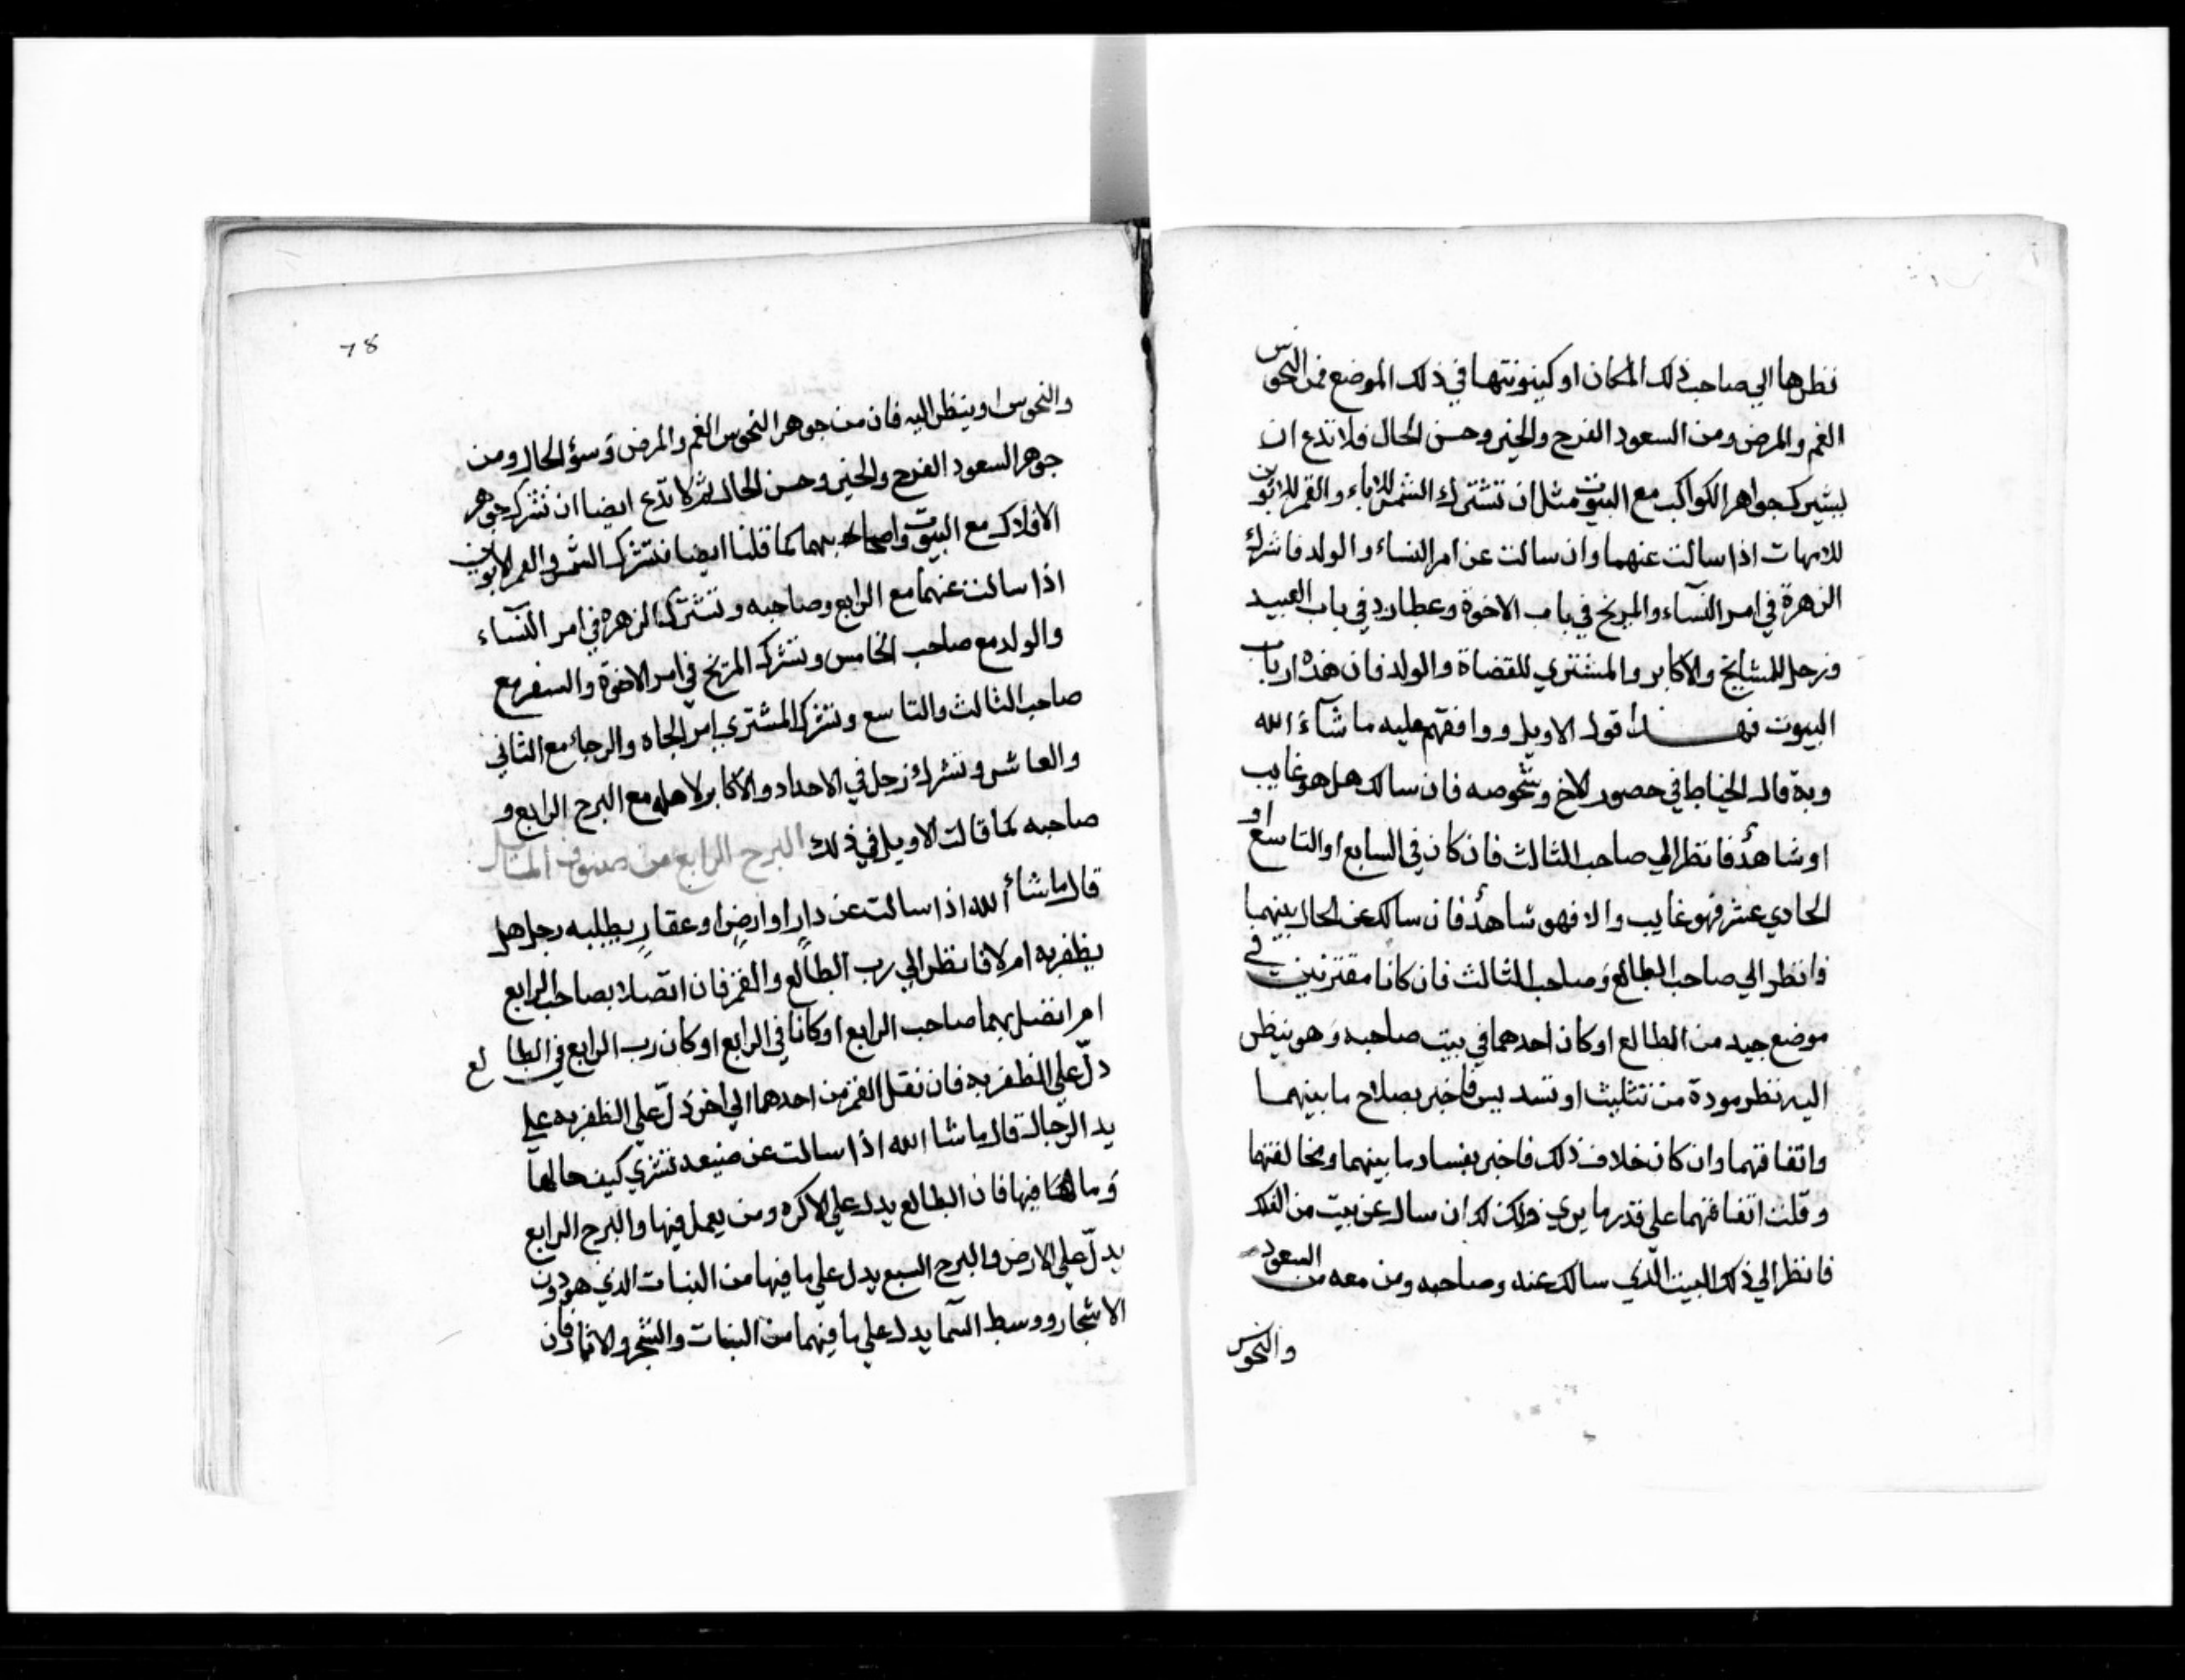 نظرها الي صاحب ذلك المكان او كينونتها في ذلك الموضع فمن النحوس
الغم والمرض ومن السعود الفرح والخير وحسن الحال فلا تدع ان
بشيرك جواهر الكواكب مع البيوت مثل ان تشترك الشمس للاباء والقمر للابوين
للامهات اذا سالت عنهما وان سالت عن امر النساء والولد فاشرك
الزهرة في امر النسآء والمريخ في باب الاخوة وعطارد في باب العبيد
وزحل للمشايخ والاكابر والمشتري للقضاة والولد فان هذه ارباب
البيوت فهذا قول الاويل ووافقهم عليه ما شآء الله
وبه قال الخياط في حصور الاخ وشخوصه فان سالك هل هو غايب
او شاهد فانظر الي صاحب الثالث فان كان في السابع او التاسع او
الحادي عشر فهو غايب والا فهو شاهد فان سالك عن الحال بينهما
فانظر الي صاحب الطالع وصاحب الثالث فان كانا مقترنين في
موضع جيد من الطالع او كان احدهما في بيت صاحبه وهو ينظر
اليه نظر مودة من تثليث او تسديس فاخبر بصلاح ما بينهما
واتفاقهما وان كان خلاف ذلك فاخبر بفساد ما بينهما ومخالفتهما
وقلت اتفاقهما علي قدر ما يري وكذلك ان سال عن بيت من الفلك
فانظر الي ذلك البيت الذي سالك عنه وصاحبه ومن معه من السعود
والنحوس
78
والنحوس او ينظر اليه فان من جوهر النحوس الغم والمرض وسؤ الحال ومن
جوهر السعود الفرح والخير وحسن الحال ثم لا تدع ايضا ان تشرك جوهر
الافلاك مع البيوت واصحابها كما قلنا ايضا تشترك الشمس والقمر لابوين
اذا سالت عنهما مع الرابع وصاحبه وتشترك الزهرة في امر النسآء
والولد مع صاحب الخامس وتشرك المريخ في امر الاخوة والسفر مع
صاحب الثالث والتاسع وتشرك المشتري امر الجاه والرجاء مع الثاني
والعاشر وتشرك زحل في الاجداد والاكابر لاهله مع البرج الرابع و
صاحبه كما قالت الاويل في ذلك البرج الرابع من صنوف المسايل
قال ما شاء الله اذا سالت عن دارٍ او ارضٍ او عقارٍ يطلبه رجل هل
يظفر به ام لا فانظر الي رب الطالع والقمر فان اتصلا بصاحب الرابع
ام اتصل بهما صاحب الرابع او كانا في الرابع او كان رب الرابع في الطالع
دلّ علي الظفر به فان نقل القمر من احدهما الي اخر دلّ علي الظفر به علي
يد الرجال قال ما شا الله اذا سالت عن ضيعه تشتري كيف حالها
وما فيها فان الطالع يدل علي الاكره ومن يعمل فيها والبرج الرابع
يدلّ علي الارض والبرج السبع يدل علي ما فيها من النبات الذي هو دون
الاشجار ووسط السما يدل علي ما فيهما من النبات والشجر والاثمار فان